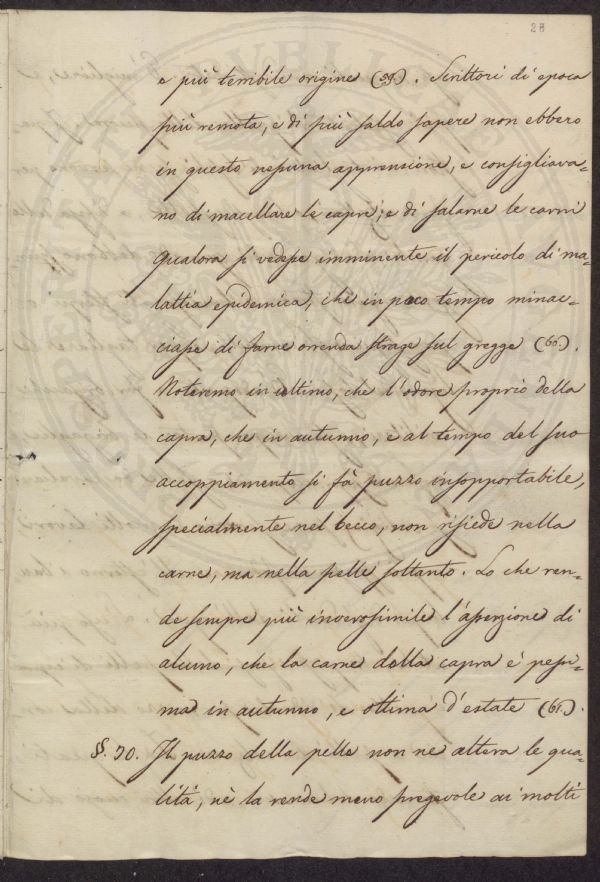 28
e più terribile origine (59.). Scrittori di epoca
più remota, e di più saldo sapere non ebbero
in questo nessuna apprensione, e consigliava=
no di macellare le capre, e di salarne le carni
qualora si vedesse imminente il pericolo di ma=
lattia epidemica, che in poco tempo minac=
ciasse di farne orrenda strage sul gregge (60.).
Noteremo in ultimo, che l'odore proprio della
capra, che in autunno, e al tempo del suo
accoppiamento si fà puzzo insopportabile,
specialmente nel becco, non risiede nella
carne, ma nella pelle soltanto. Lo che ren=
de sempre più inverosimile l'aserzione di
alcuno, che la carne della capra è pessi=
ma in autunno, e ottima d'estate (61.).
§. 30. Il puzzo della pelle non ne altera le qua=
lità, nè la rende meno pregevole ai molti